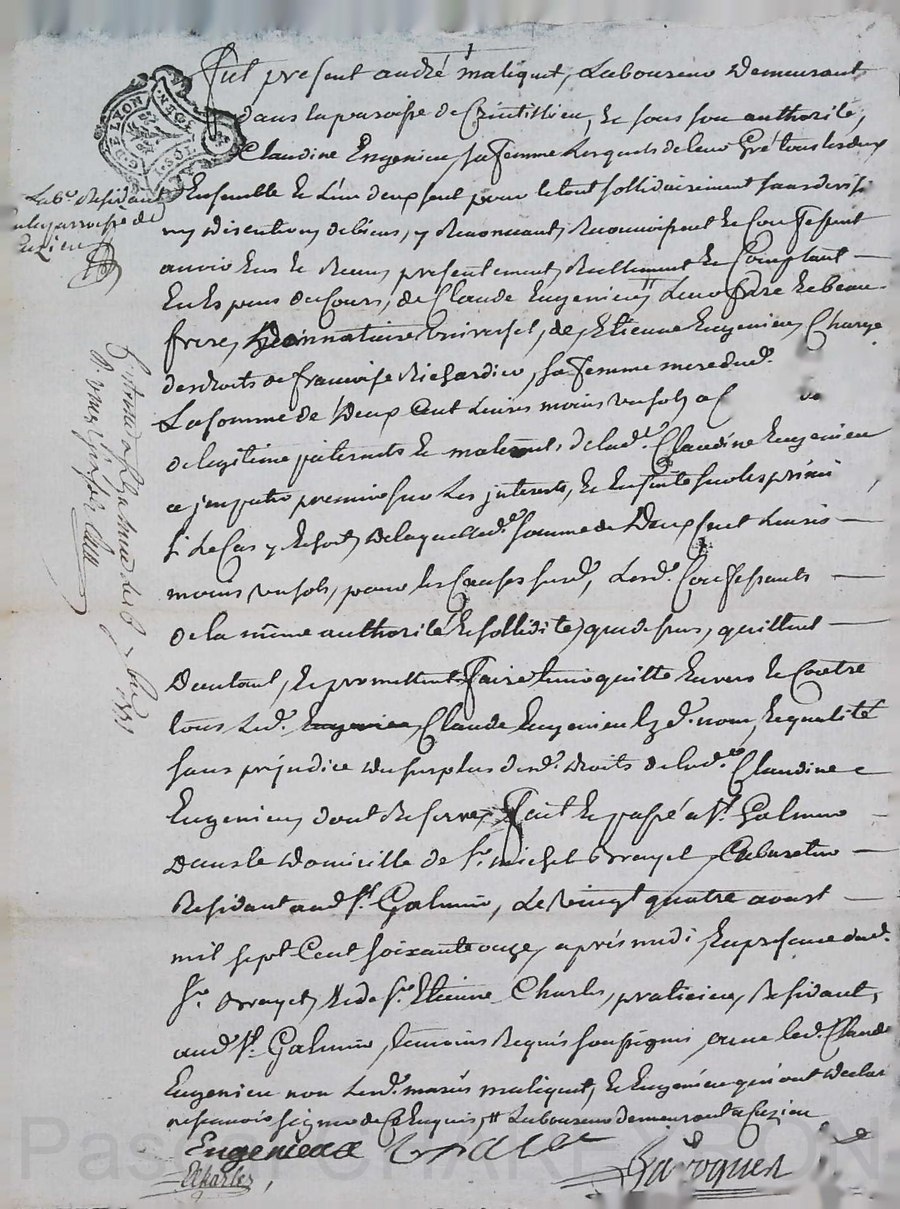 Fut present andré maliquet, Laboureur Demeurant
dans la paroisse de Craintillieu, Et sous son authorité,
Claudine Eugenieu, sa femme Lesquels de leur Gré tous les deux
Ensemble Et L'un deux seul pour le tout sollidairement sans divisi
ny discution de biens, y Renonceant, Reconnoissent Et Confessent
avoir Eu Et Receu presentement Reellement Et Comptant
En Especes de Cours, de Claude Eugenieu # Leur frere Et beau
frere, donnataire Universel, de, Etienne Eugenieu, Charge
des droits de francoise Richardier, sa femme mere dud.
La somme de Deux Cent Livres moins un sols a C
de legitime paternels Et maternels de lad.e Claudine Eugenieu
a jmputer premier sur Les jnterets, Et Ensuite sur les princi
si Le Cas y Echoit, De laquelle d.e somme de Deux Cent Livres
moins un sols, pour les Causes susd. Lesd. Confessants
de la même authorité Et sollidité que dessus, quittent
Dautant, Et promettent faire tenir quitte Envers Et Contre
tous Led. Claude Eugenieu Esd. nom, Et qualité
sans préjudice du surplus desd. droits de lad.e Claudine
Eugenieu dont Reserve, fait Et passé a S.t Galmier
Dans le Domicille de S.r michel Orayet Cabaretier
Residant aud. S.t Galmier, Le Vingt quatre aoust
mil sept Cent soixante onze, aprés midi, En presence dud.
S.r Orayet, Et de S.r Etienne Charles, praticien, Residant,
aud. S.t Galmier, temoins Requis soussignés, avec led. Claude
Eugenieu non Lesd. mariés maliquet, Et Eugenieu qui ont declar
ne scavoir signer de Ce Enquis, # Laboureur demeurant a Cuzieu
Eugenieux
Charles
Laroquen
Lab.r Residant
En la parroisse de
Cuzieu
G. DE LYON